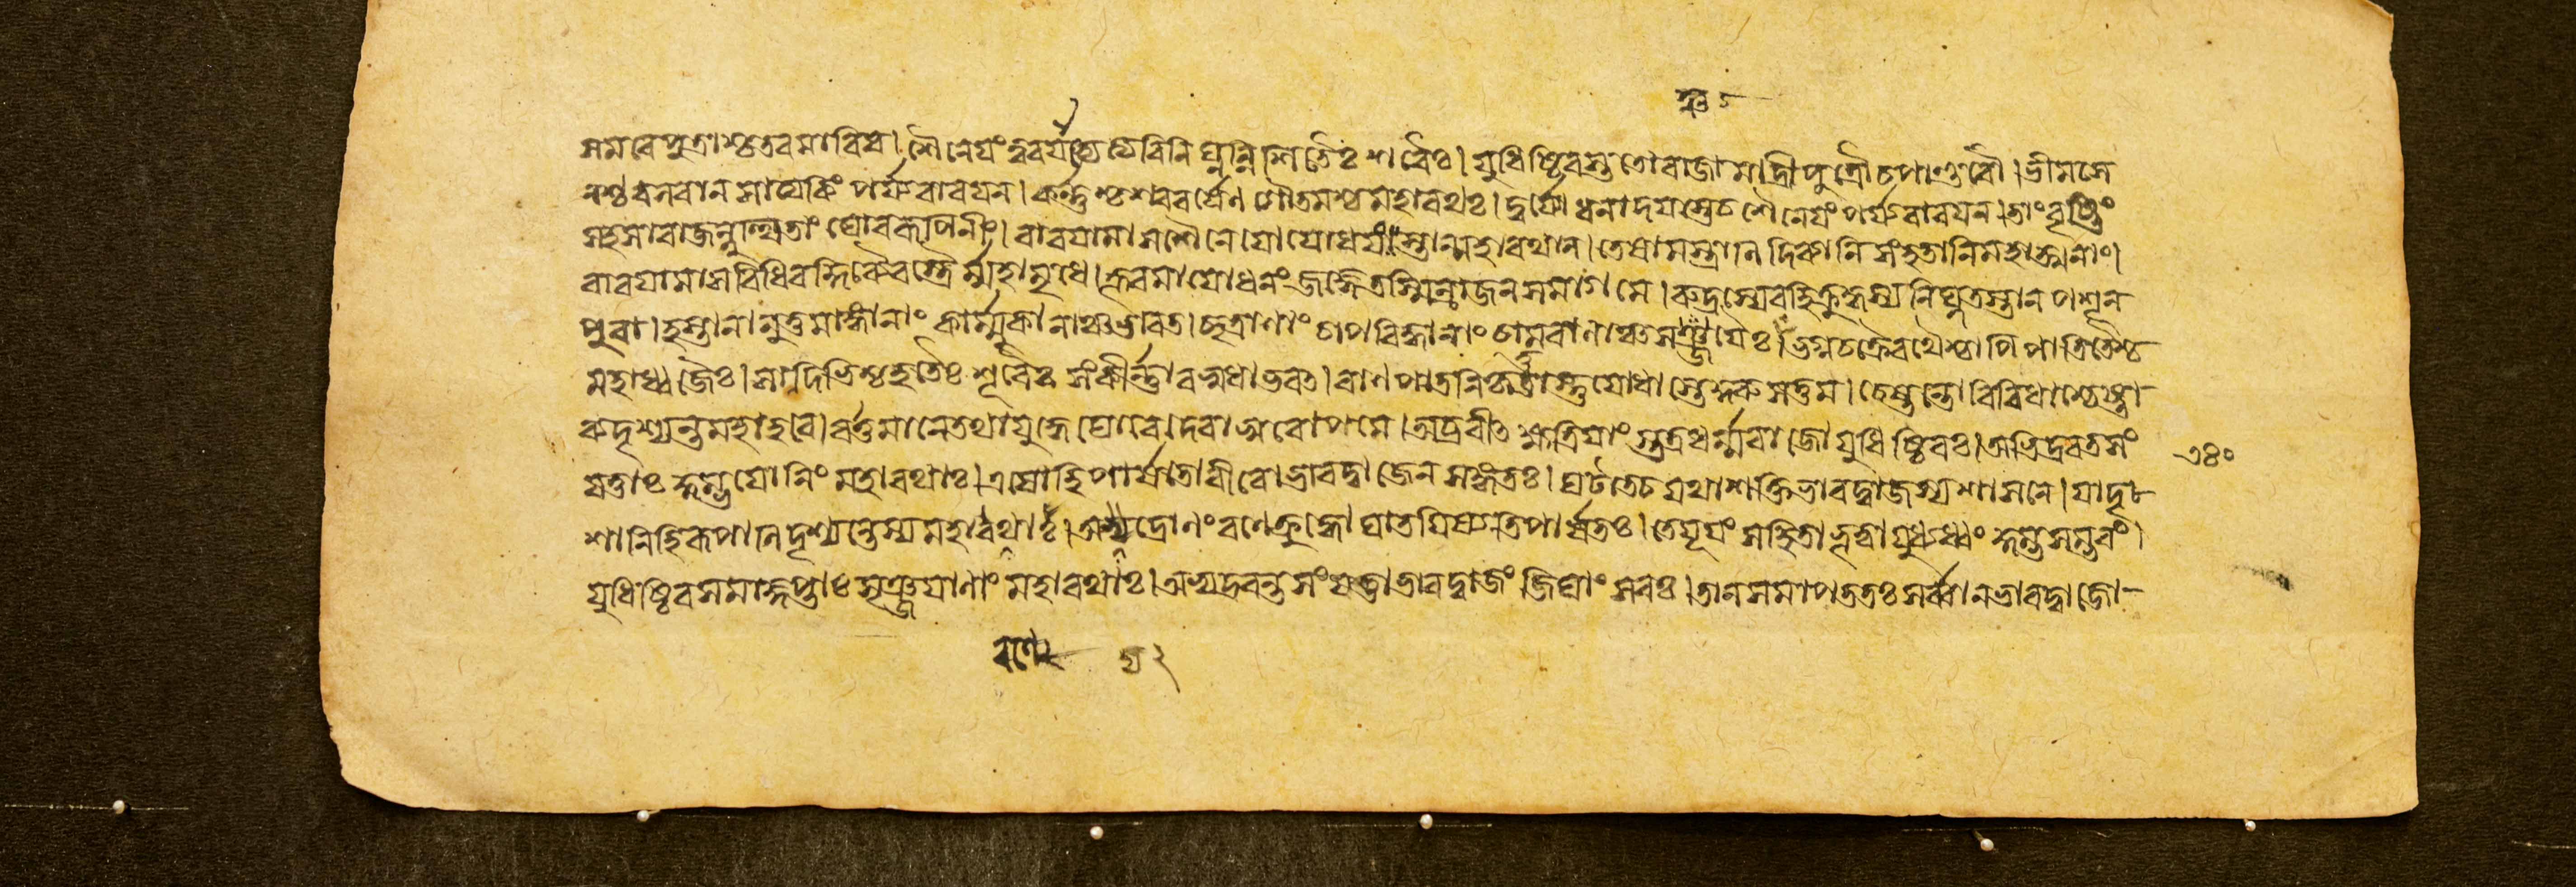 সমরে পুত্রাশ্চ তব মারিষ। শৈনেয়ং ত্বরয়ন্ত্যেতে বিনিঘ্নন্নিশিতৈঃ শরৈঃ। যুধিষ্ঠিরস্তু তো রাজা মাদ্রীপুত্রৌ চ পাণ্ডবৌ। ভীমসে
নশ্চ বলবান সাত্যকিং পর্য্যবারয়ন। কর্ণ্ণশ্চ শরবর্ষেণ গৌতমশ্চ মহারথঃ। দুর্যোধনাদয়স্তে চ শৈনেয়ং পর্য্যবারয়ন। তাং বৃষ্টিং
সহসা রাজন্নুত্থিতাং ঘোররূপিণীং। বারয়ামাস শৈনেয়ো যোধয়ংস্তান্মহারথান। তেষামস্ত্রাণি দিব্যানি সংহতানি মহাত্মনাং।
বারয়ামাস বিধিবদ্দিব্যৈরস্ত্রৈর্ম্মহামৃধে। ক্রূরমায়োধনং জজ্ঞে তস্মিন্রাজনসমাগমে। রুদ্রস্যেব হি ক্রুদ্ধস্য নিঘ্নতস্তান পশূন
পুরা। হস্তানামুত্তমাঙ্গানাং কার্ম্মুকানাঞ্চ ভারত। ছত্রাণাং চাপবিদ্ধানাং চামরাণাঞ্চ সঞ্চয়ৈঃ। ভগ্নচক্রৈ রথৈশ্চাপি পাতিতৈশ্চ
মহাধ্বজৈঃ। সাদিভিশ্চ হতৈঃ শূরৈঃ সংকীর্ণ্ণা বসুধাভবৎ। বাণপাতনিকৃত্তাস্তু যোধাস্তে কুরুসত্তম। চেষ্টন্তো বিবিধাশ্চেষ্টা
ব্যদৃশ্যন্ত মহাহবে। বর্ত্তমানে তথা যুদ্ধে ঘোরে দেবাসুরোপমে। অব্রবীৎ ক্ষত্রিয়াংস্তত্র ধর্ম্মরাজো যুধিষ্ঠিরঃ। অভিদ্রবত সং
যত্তাঃ কুম্ভযোনিং মহারথাঃ। এষো হি পার্ষতো বীরো ভারদ্বাজেন সঙ্গতঃ। ঘটতে চ যথাশক্তি ভারদ্বাজস্য নাশনে। যাদৃ
শানি হি রূপাণি দৃশ্যন্তেস্য মহারথাঃ। অদ্য দ্রোণং রণে ক্রুদ্ধো ঘাতয়িষ্যতি পার্ষতঃ। তে যূয়ং সহিতা ভূত্বা যুধ্যধ্বং কুম্ভসম্ভবং।
যুধিষ্ঠিরসমাজ্ঞপ্তাঃ সৃঞ্জয়ানাং মহারথাঃ। অভ্যদ্রবন্ত সংযত্তা ভারদ্বাজং জিঘাংসবঃ। তান সমাপততঃ সর্ব্বান ভারদ্বাজো